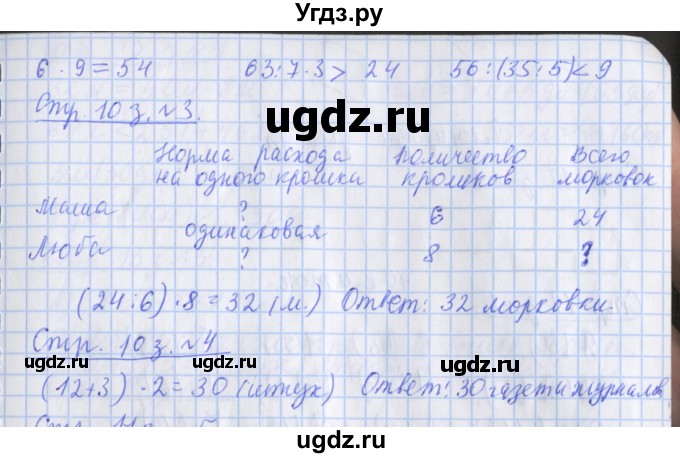 Угдз.ру
6 · 9 = 54 63:7·3 > 24 56:(35:5) < 9
Стр. 10 з. №3.
ugdz.ru
Норма расхода Количество Всего
на одного кролика кроликов морковок
Маша ? 6 24
одинаковая
Люба ? 8 ?
(24:6)·8=32 (м.) Ответ: 32 морковки.
Стр. 10 з. №4
ugdz.ru ugdz.ru ugdz.ru
(12+3)·2=30 (штук) Ответ: 30 газет и журналов
ugdz.ru